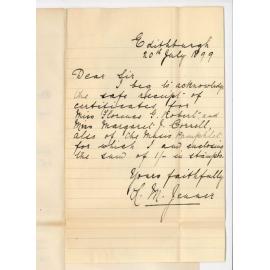 Edithburgh
20th July 1899
Dear Sir
I beg to acknowledge
the safe receipt of
certificates for
Miss Florence G. Robert and
Miss Margaret E. Correll,
also of the Mass Pamphlet
for which I am enclosing
the sum of 1/- in stamps.
Yours faithfully
H. M. Jenner